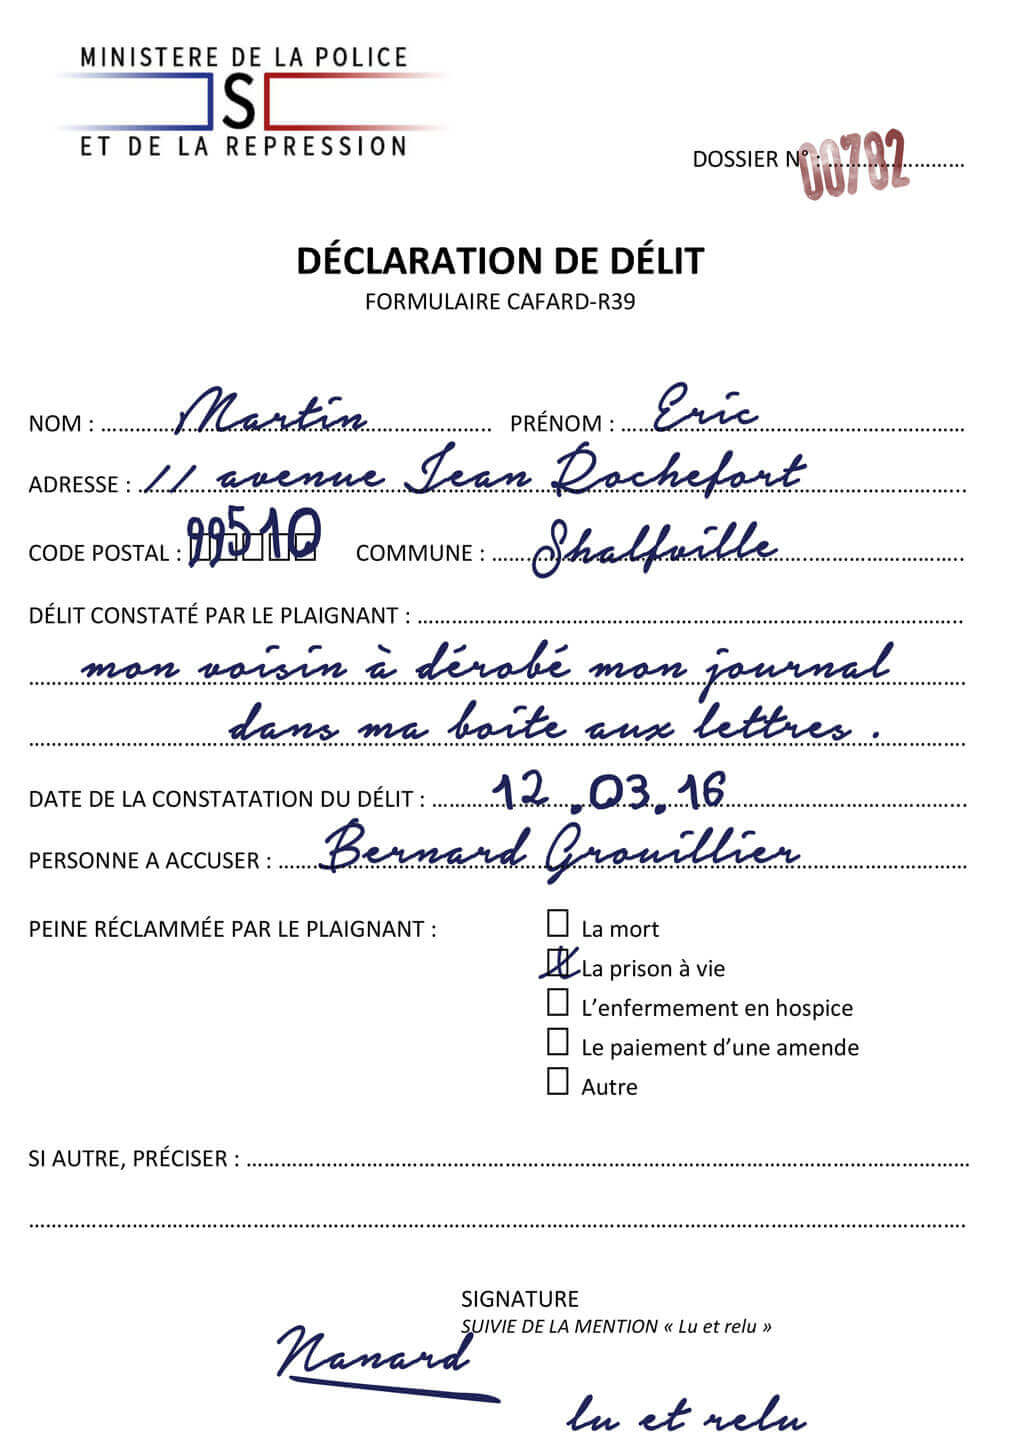 MINISTERE DE LA POLICE
S
ET DE LA REPRESSION
DOSSIER N° : 00782
DÉCLARATION DE DÉLIT
FORMULAIRE CAFARD-R39
NOM : Martin PRÉNOM : Eric
ADRESSE : 11 avenue Jean Rochefort
CODE POSTAL : 99510 COMMUNE : Shalfville
DÉLIT CONSTATÉ PAR LE PLAIGNANT :
mon voisin à dérobé mon journal
dans ma boîte aux lettres .
DATE DE LA CONSTATATION DU DÉLIT : 12.03.16
PERSONNE A ACCUSER : Bernard Grouillier
PEINE RÉCLAMMÉE PAR LE PLAIGNANT : La mort
X La prison à vie
L’enfermement en hospice
Le paiement d’une amende
Autre
SI AUTRE, PRÉCISER :
SIGNATURE
SUIVIE DE LA MENTION « Lu et relu »
Nanard
lu et relu